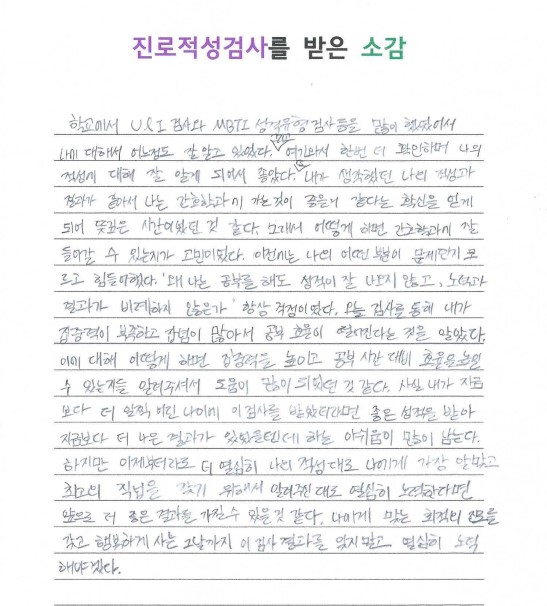 진로적성검사를 받은 소감
학교에서 U&I 검사와 MBTI 성격유형검사 등을 많이 했었어서
나에 대해서 어느정도 잘 알고 있었다. 여기와서 한번 더 확인하며 나의
적성에 대해 잘 알게 되어서 좋았다. 내가 생각했던 나의 적성과
결과가 같아서 나는 간호학과에 가는것이 좋은거 같다는 확신을 얻게
되어 뜻깊은 시간이었던 것 같다. 그래서 어떻게 하면 간호학과에 잘
들어갈 수 있는지가 고민이었다. 이전에는 나의 어떤 부분이 문제인지 모
르고 힘들어했다. '왜 나는 공부를 해도 성적이 잘 나오지 않고, 노력과
결과가 비례하지 않은가' 항상 걱정이었다. 오늘 검사를 통해 내가
집중력이 부족하고 잡념이 많아서 공부 효율이 떨어진다는 것을 알았다.
이에 대해 어떻게 하면 집중력을 높이고 공부 시간 대비 효율을 높일
수 있는지를 알려주셔서 도움이 많이 되었던 것 같다. 사실 내가 지금
보다 더 일찍 어린 나이에 이 검사를 받았더라면 좋은 성적을 받아
지금보다 더 나은 결과가 있었을텐데 하는 아쉬움이 많이 남는다.
하지만 이제부터라도 더 열심히 나의 적성대로 나에게 가장 알맞고
최고의 직업을 갖기 위해서 알려주신대로 열심히 노력한다면
앞으로 더 좋은 결과를 가질 수 있을 것 같다. 나에게 맞는 최적의 진로를
갖고 행복하게 사는 그날까지 이 검사 결과를 잊지말고 열심히 노력
해야겠다.